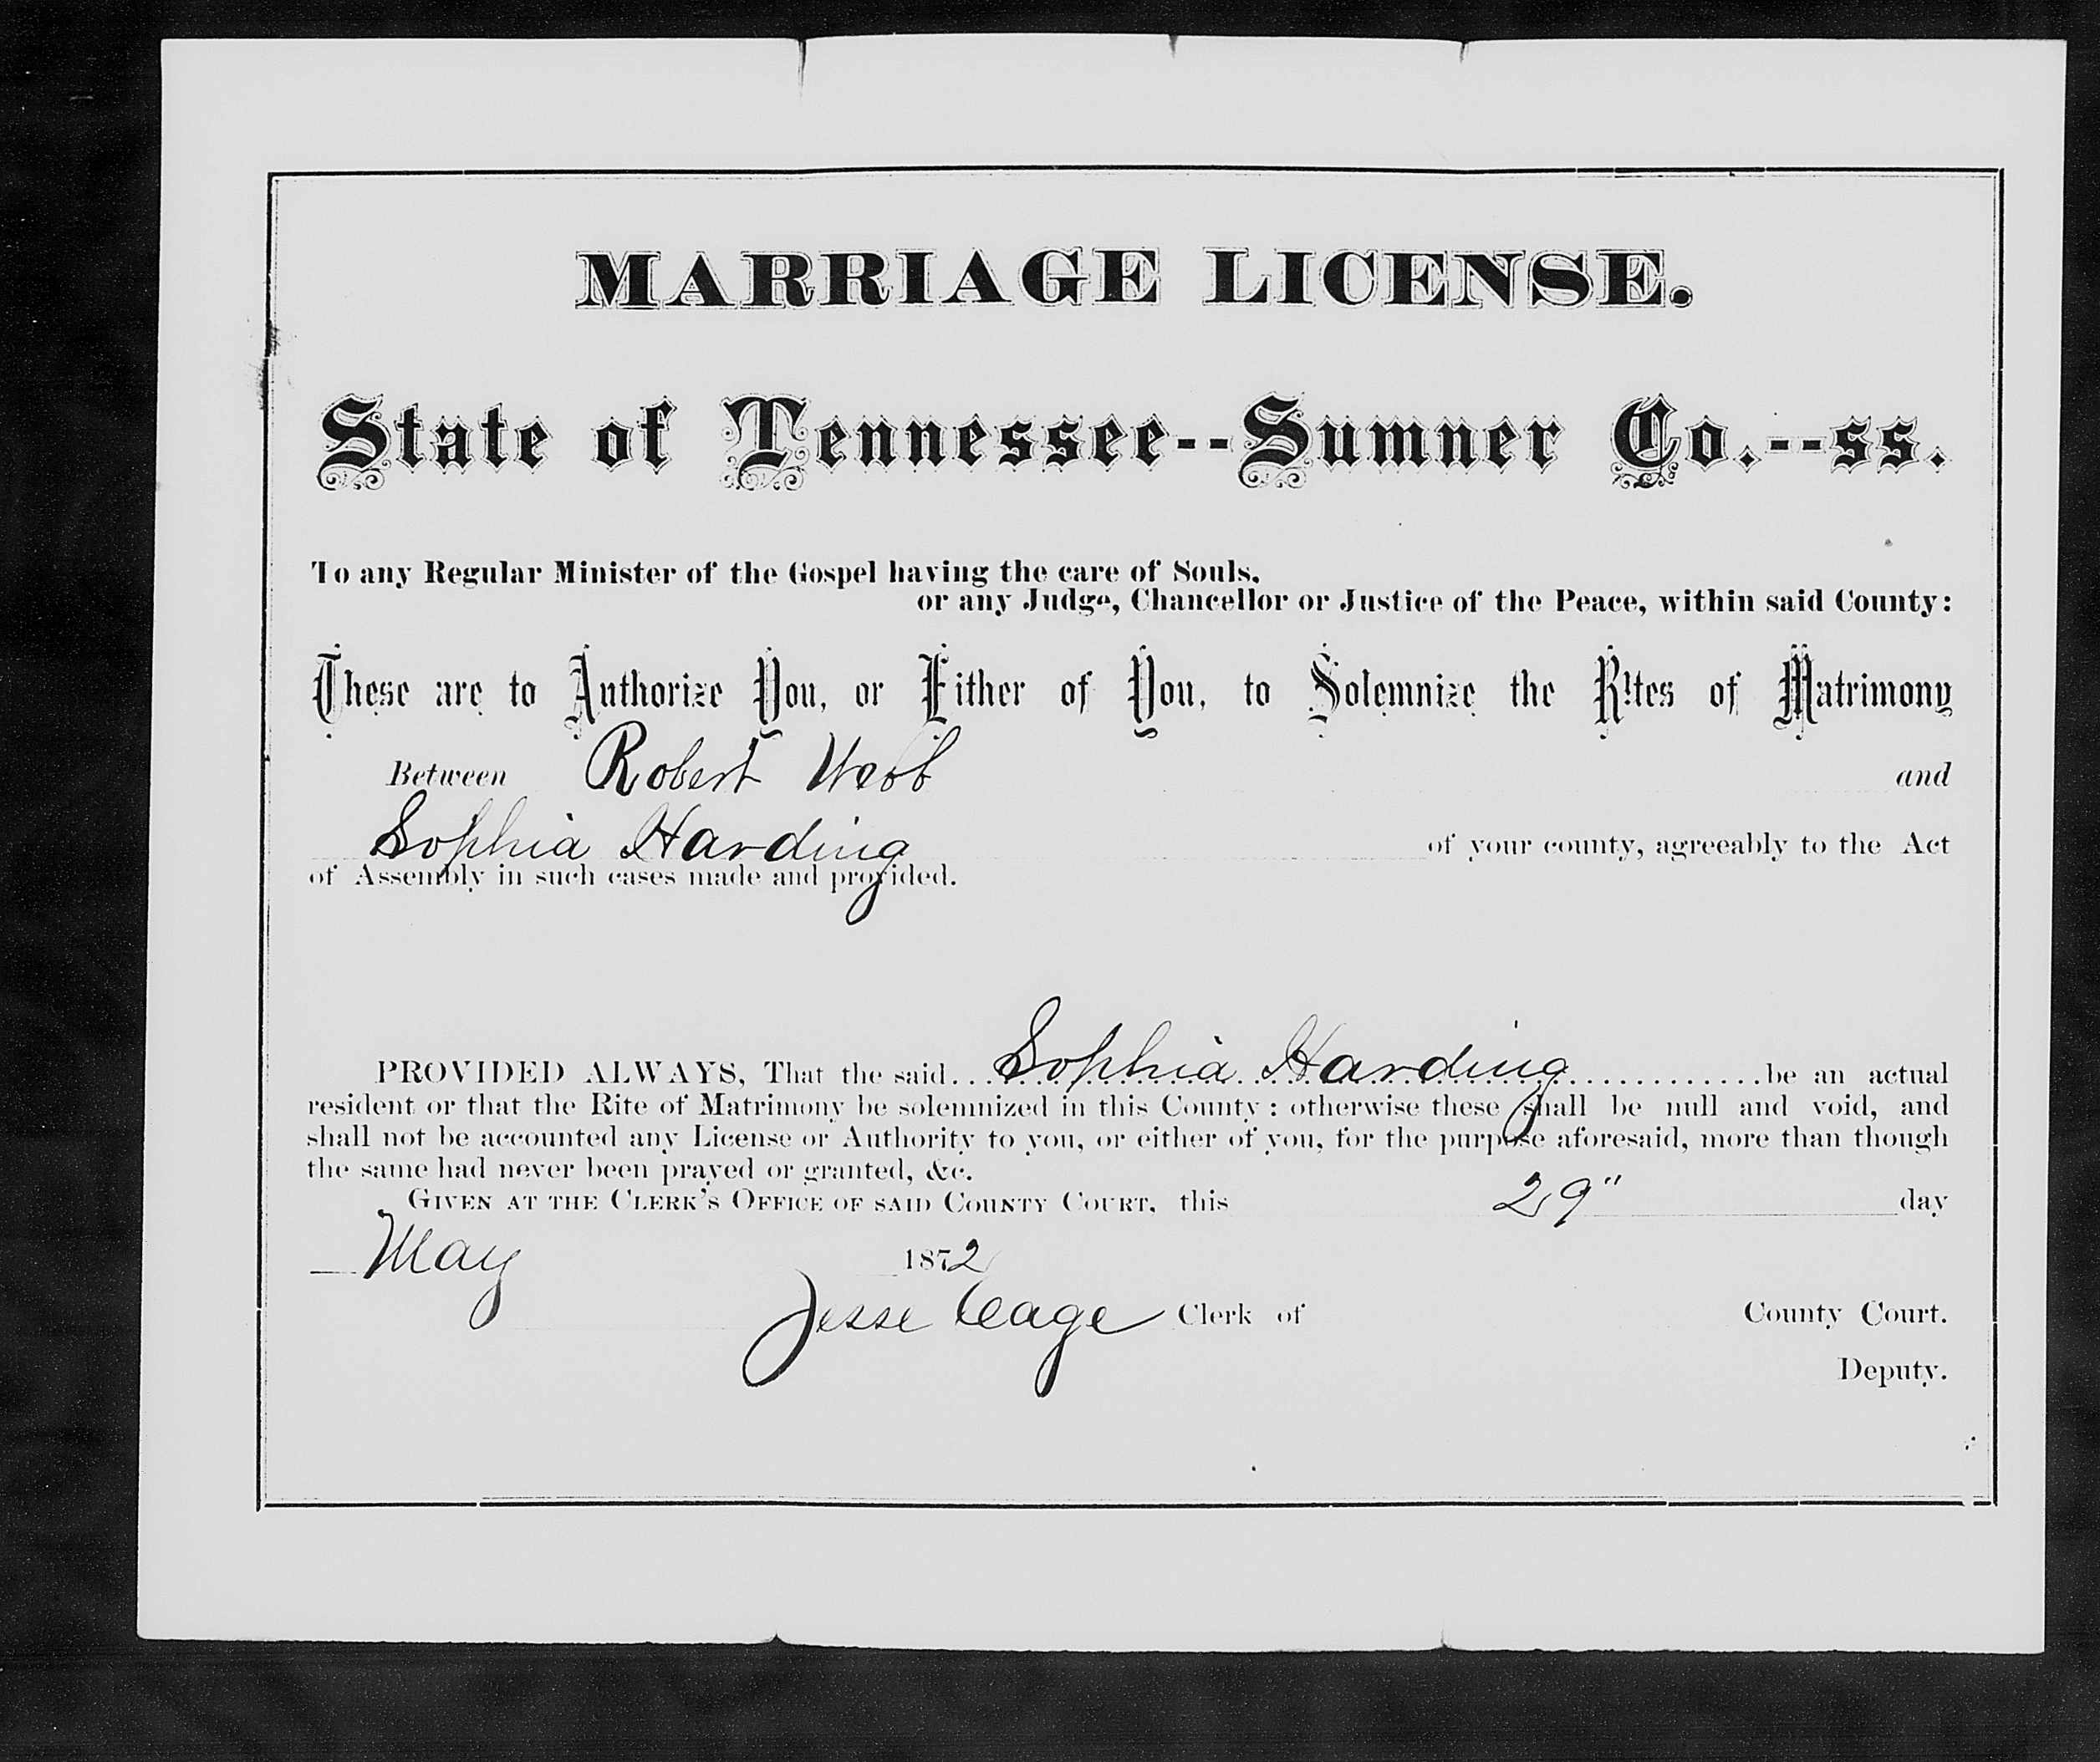 MARRIAGE LICENSE.
State of Tennessee--Sumner Co.--ss.
To any Regular Minister of the Gospel having the care of Souls,
or any Judge, Chancellor or Justice of the Peace, within said County:
These are to Authorize You, or Either of You, to Solemnize the Rites of Matrimony
Between Robert Webb and
Sophia Harding of your county, agreeably to the Act
of Assembly in such cases made and provided.
PROVIDED ALWAYS, That the said Sophia Harding be an actual
resident or that the Rite of Matrimony be solemnized in this County: otherwise these shall be null and void, and
shall not be accounted any License or Authority to you, or either of you, for the purpose aforesaid, more than though
the same had never been prayed or granted, &c.
GIVEN AT THE CLERK'S OFFICE OF SAID COUNTY COURT, this 29" day
May 1872
Jesse Cage Clerk of County Court.
Deputy.